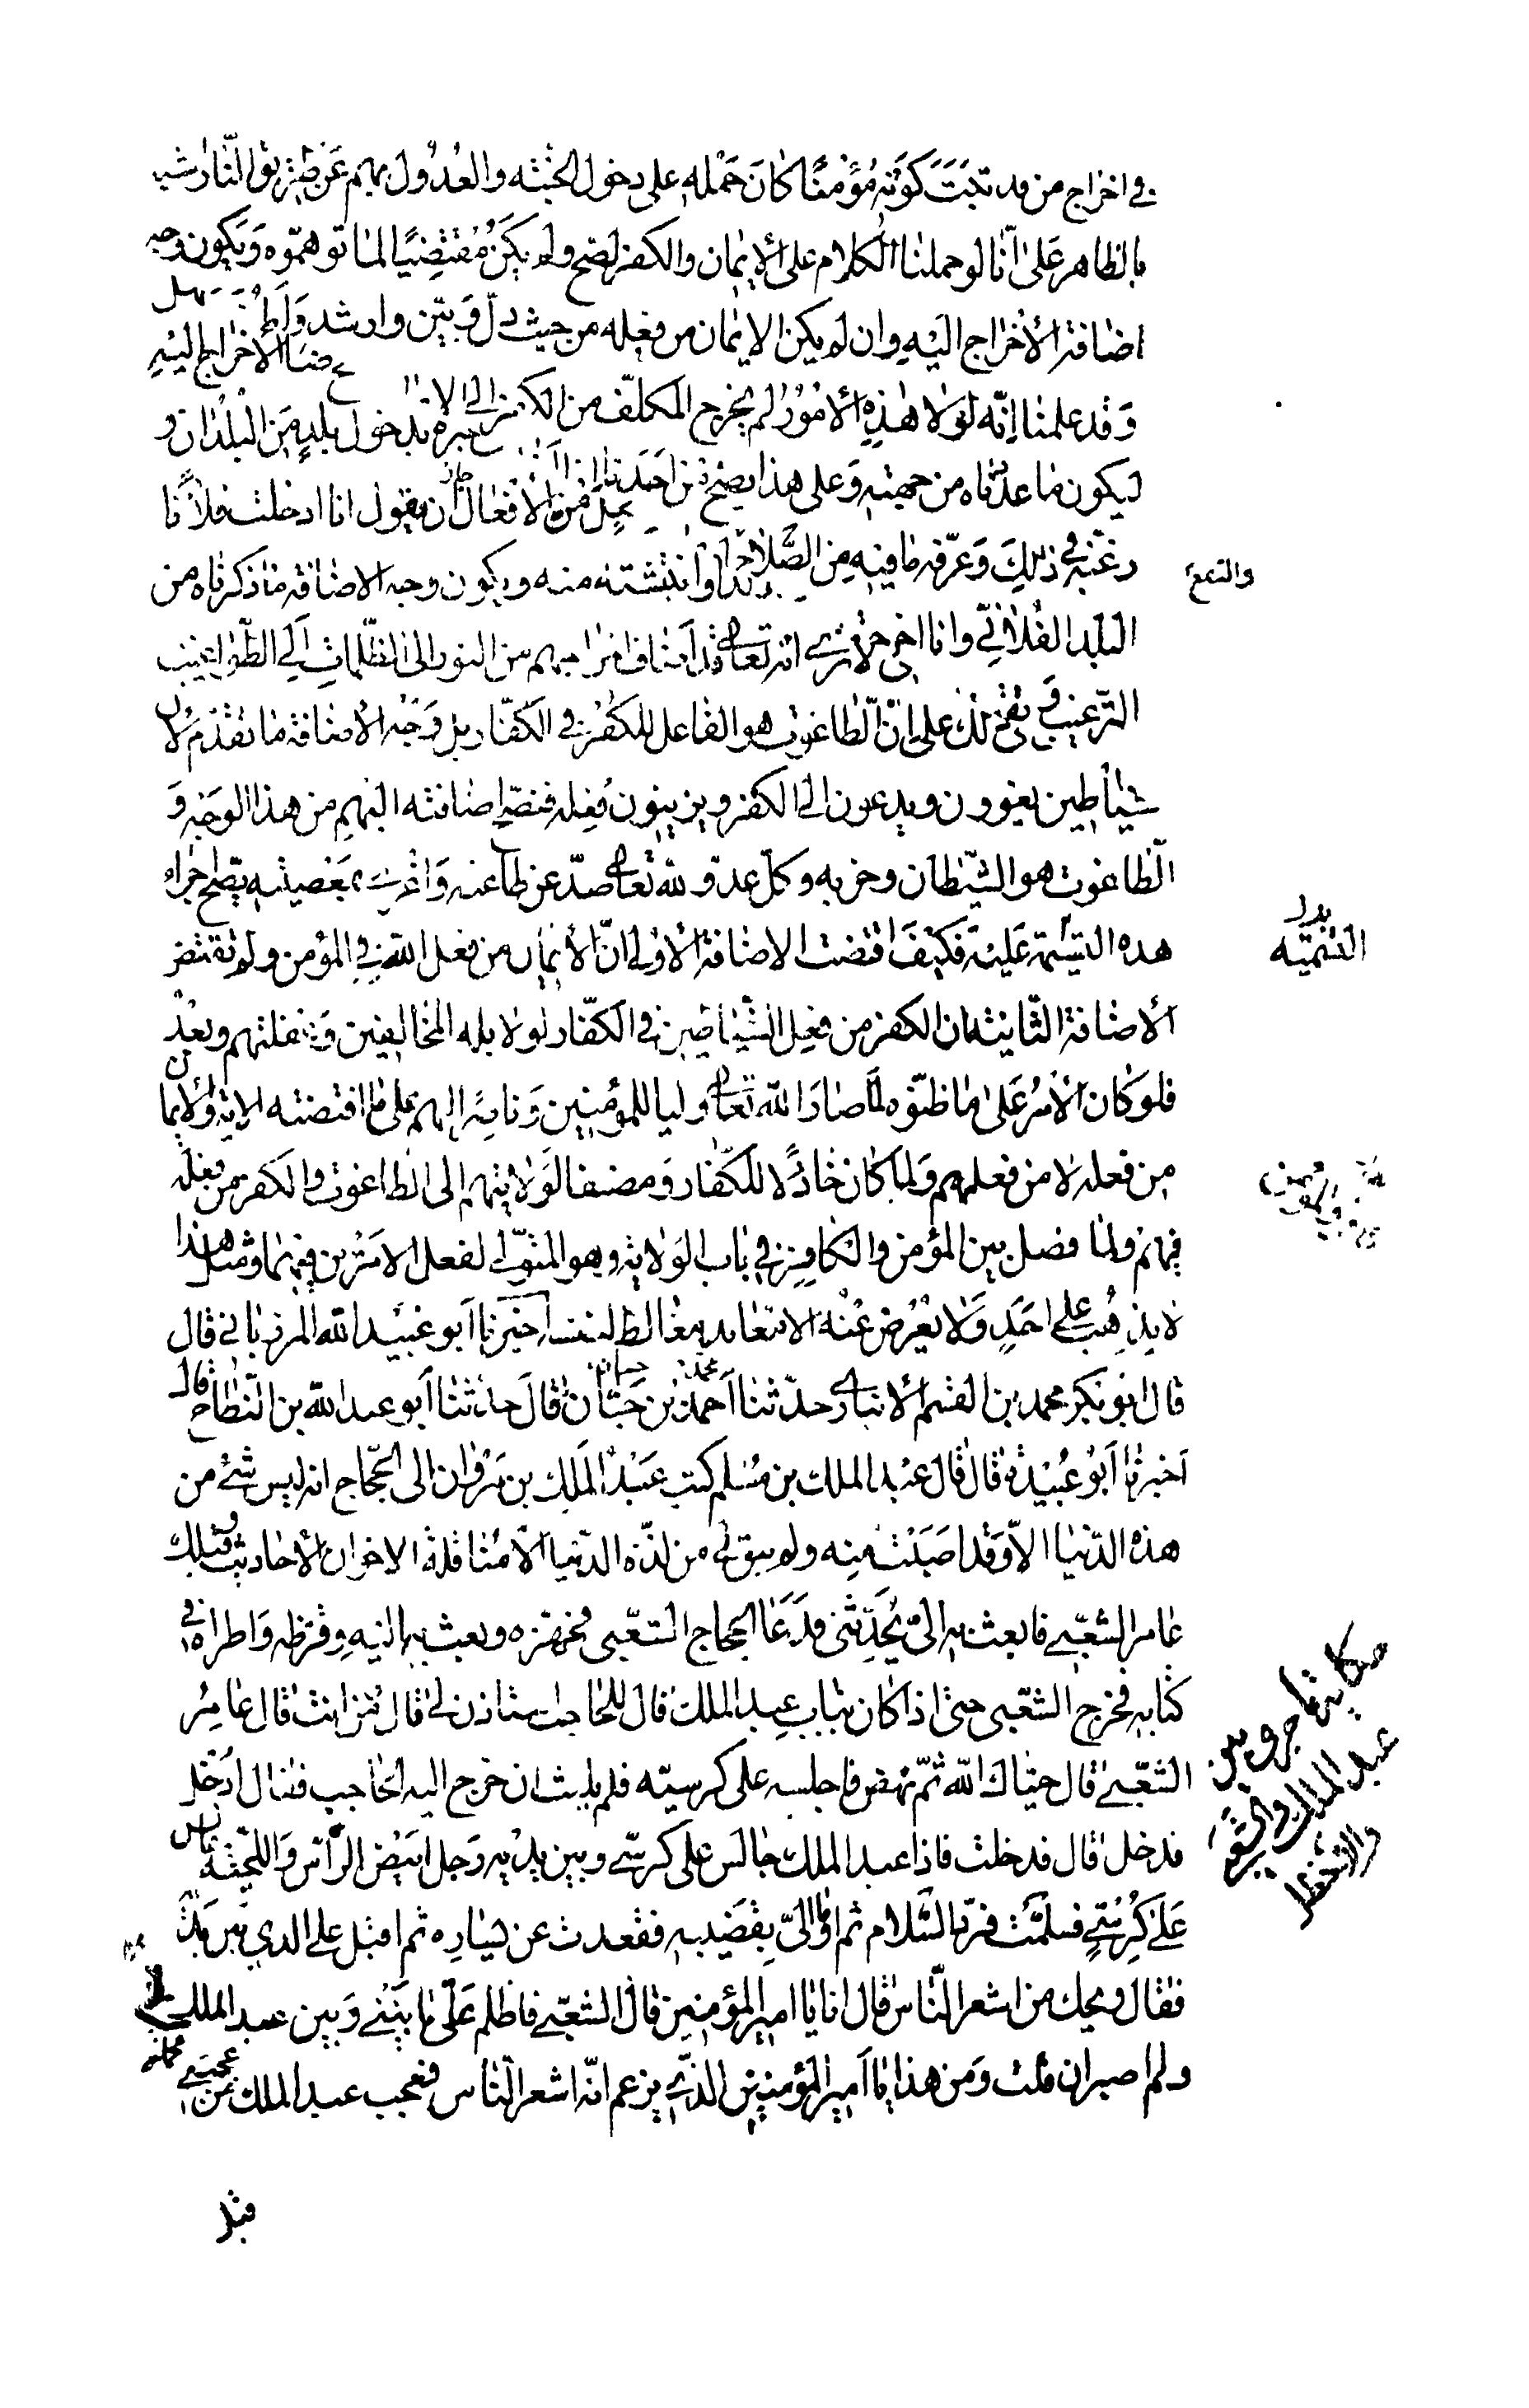 في اخراج من قد ثبتت كونه مؤمنا كان حمله على دخول الجنة والعدول بهم عن طريق النار اشبه
بالظاهر على انا لو حملنا الكلام على الايمان والكفر لصح ولم يكن مقتضيا لما توهموه ويكون وجه
اضافة الاخراج اليه وان لم يكن الايمان من فعله من حيث دل وبين وارشد
وقد علمنا انه لولا هذه الامور لم يخرج المكلف من الكفر الى
الاخراج اليه
ليكون ما عددناه من جهته وعلى هذا يصح من احدنا اذا بدخول بلد من البلدان و
رغبه في ذلك وعرفه ما فيه من الصلاح من الافعال ان يقول انا ادخلت فلانا
البلد الفلاني وانا اخرجته وانتشته منه ويكون وجه الاضافة ما ذكرناه من
الترغيب الا ترى انه تعالى قد اضاف اخراجهم من النور الى الظلمات الى الطواغيت
على ان الطاغوت هو الفاعل للكفر في الكفار بل وجه الاضافة ما تقدم لان
شياطين يغوون ويدعون الى الكفر ويزينون فعله فتصح اضافته اليهم من هذا الوجه و
الطاغوت هو الشيطان وحزبه وكل عدو لله تعالى صد عن طاعته واغرى بمعصيته يصح اجراء
هذه التسمية عليه فكيف اقتضت الاضافة الاولى ان الايمان من فعل الله في المؤمن ولم تقتض
الاضافة الثانية ان الكفر من فعل الشياطين في الكفار لولا بله المخالفين وغفلتهم وبعد
فلو كان الامر على ما ظنوه لما صار الله تعالى وليا للمؤمنين وناصرا لهم على ما اقتضته الاية والايمان
من فعله لا من فعلهم ولما كان خاذلا للكفار ومضيفا لولايتهم الى الطاغوت والكفر من فعله
فيهم ولما فصل بين المؤمن والكافر في باب الولاية وهو المتولى لفعل الامرين فيهما ومثل هذا
لا يذهب على احد ولا يعرض عنه الا معاند مغالط لنفسه اخبرنا ابو عبيد الله المرزباني قال
قال ابو بكر محمد بن القسم الانباري حدثنا احمد بن حيان قال حدثنا ابو عبد الله بن النطاح قال
اخبرنا ابو عبيدة قال قال عبد الملك بن مسلم كتب عبد الملك بن مروان الى الحجاج انه ليس شئ من
هذه الدنيا الا وقد اصبت منه ولم يبق لي من لذة الدنيا الا مناقلة الاخوان الاحاديث وقبلك
عامر الشعبي فابعث به الى يحدثنى فدعا الحجاج الشعبي فجهزه وبعث به اليه وقرظه واطراه في
كتابه فخرج الشعبي حتى اذا كان بباب عبد الملك قال للحاجب استاذن لي قال من انت قال عامر
الشعبي قال حياك الله ثم نهض فاجلسه على كرسيه فلم يلبث ان خرج اليه الحاجب فقال ادخل
فدخل قال فدخلت فاذا عبد الملك جالس على كرسي وبين يديه رجل ابيض الراس واللحية جالس
على كرسي فسلمت فرد السلام ثم اومأ الى بقضيبه فقعدت عن يساره ثم اقبل على الذي بين يديه
فقال ويحك من اشعر الناس قال انا يا امير المؤمنين قال الشعبي فاظلم على ما بيني وبين عبد الملك
ولم اصبر ان قلت ومن هذا يا امير المؤمنين الذي يزعم انه اشعر الناس فعجب عبد الملك من عجلتي
قبل
التسمية
حكاية ما جرى بين
عبد الملك والشعبي
والاخطل